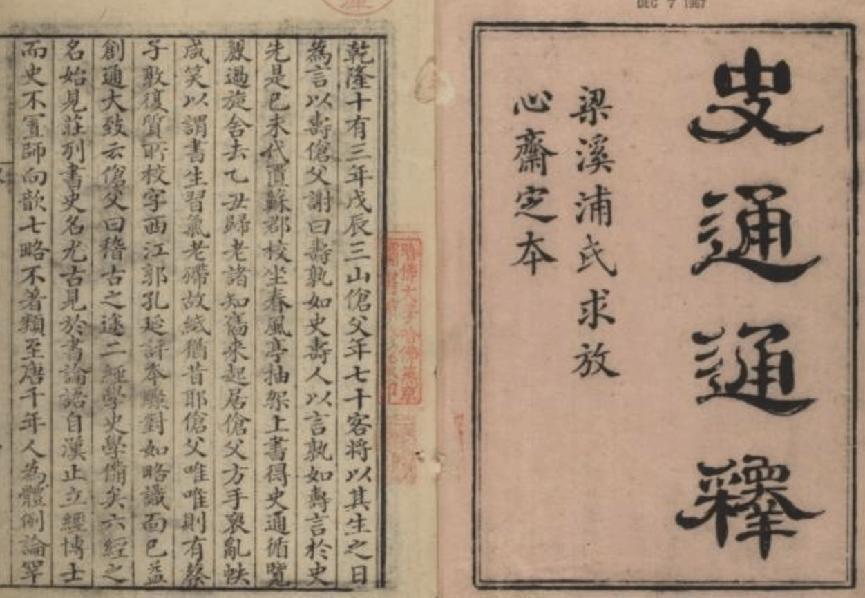 DEC 7 1967
史通通釋
梁溪浦氏求放
心齋定本
哈佛大學哈佛燕京
乾隆十有三年戊辰三山傖父年七十客將以其生之日
為言以壽傖父謝曰壽孰如史壽人以言孰如壽言於史
先是己未代匱蘇郡校坐春風亭抽架上書得史通循覽
過旋舍去乙丑歸老諸知舊來起居傖父方手裒亂帙
咸笑以謂書生習氣老滯故紙猶昔耶傖父唯唯則有蔡
子敦復質所校字西江郭孔延評本對如略識面已益
創通大致云傖父曰稽古之途二經學史學備矣六經之
名始見莊列書史名尤古見於書論語自漢止立經博士
而史不置師向歆七略不著類至唐千年人為體例論罕